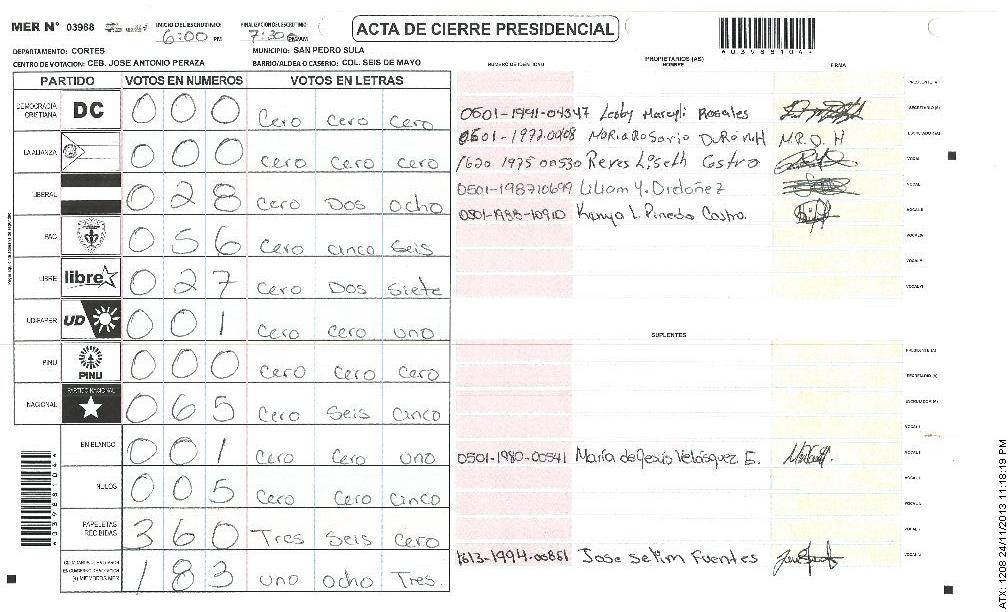 MER N° 03988 INICIO DEL ESCRUTINIO: 6:00 PM FINALIZACION DEL ESCRUTINIO: 7:30 AM
ACTA DE CIERRE PRESIDENCIAL
DEPARTAMENTO: CORTES MUNICIPIO: SAN PEDRO SULA
CENTRO DE VOTACION: CEB. JOSE ANTONIO PERAZA BARRIO/ALDEA O CASERIO: COL. SEIS DE MAYO
A 0 3 9 8 8 1 0 4
PARTIDO VOTOS EN NUMEROS VOTOS EN LETRAS
DEMOCRACIA CRISTIANA DC 0 0 0 Cero cero cero
LA ALIANZA 0 0 0 cero cero cero
LIBERAL 0 2 8 cero Dos ocho
PAC 0 5 6 cero cinco seis
LIBRE libre 0 2 7 cero Dos siete
UD-FAPER UD 0 0 1 cero cero uno
PINU PINU 0 0 0 cero cero cero
NACIONAL PARTIDO NACIONAL 0 6 5 cero seis cinco
EN BLANCO 0 0 1 cero cero uno
NULOS 0 0 5 cero cero cinco
PAPELETAS RECIBIDAS 3 6 0 Tres seis cero
1 8 3 uno ocho Tres.
A 0 3 9 8 8 1 0 4
NUMERO DE IDENTIDAD PROPIETARIOS (AS) NOMBRE FIRMA
PRESIDENTE (A)
0501-1991-04347 Rosales SECRETARIO (A)
Maria Rosario M.R.D H ESCRUTADOR (A)
1620 1975 00530 Reyes Liseth Castro VOCAL
0501-198710699 Liliam Y. Ordoñez
0501-1988-10910 Kenya L. Pineda Castro.
SUPLENTES
PRESIDENTE (A)
SECRETARIO (A)
ESCRUTADOR (A)
0501-1980-00541 María de Jesús Velásquez E.
1613-1994-00851 Jose selim Fuentes
ATX: 1208 24/11/2013 11:18:19 PM